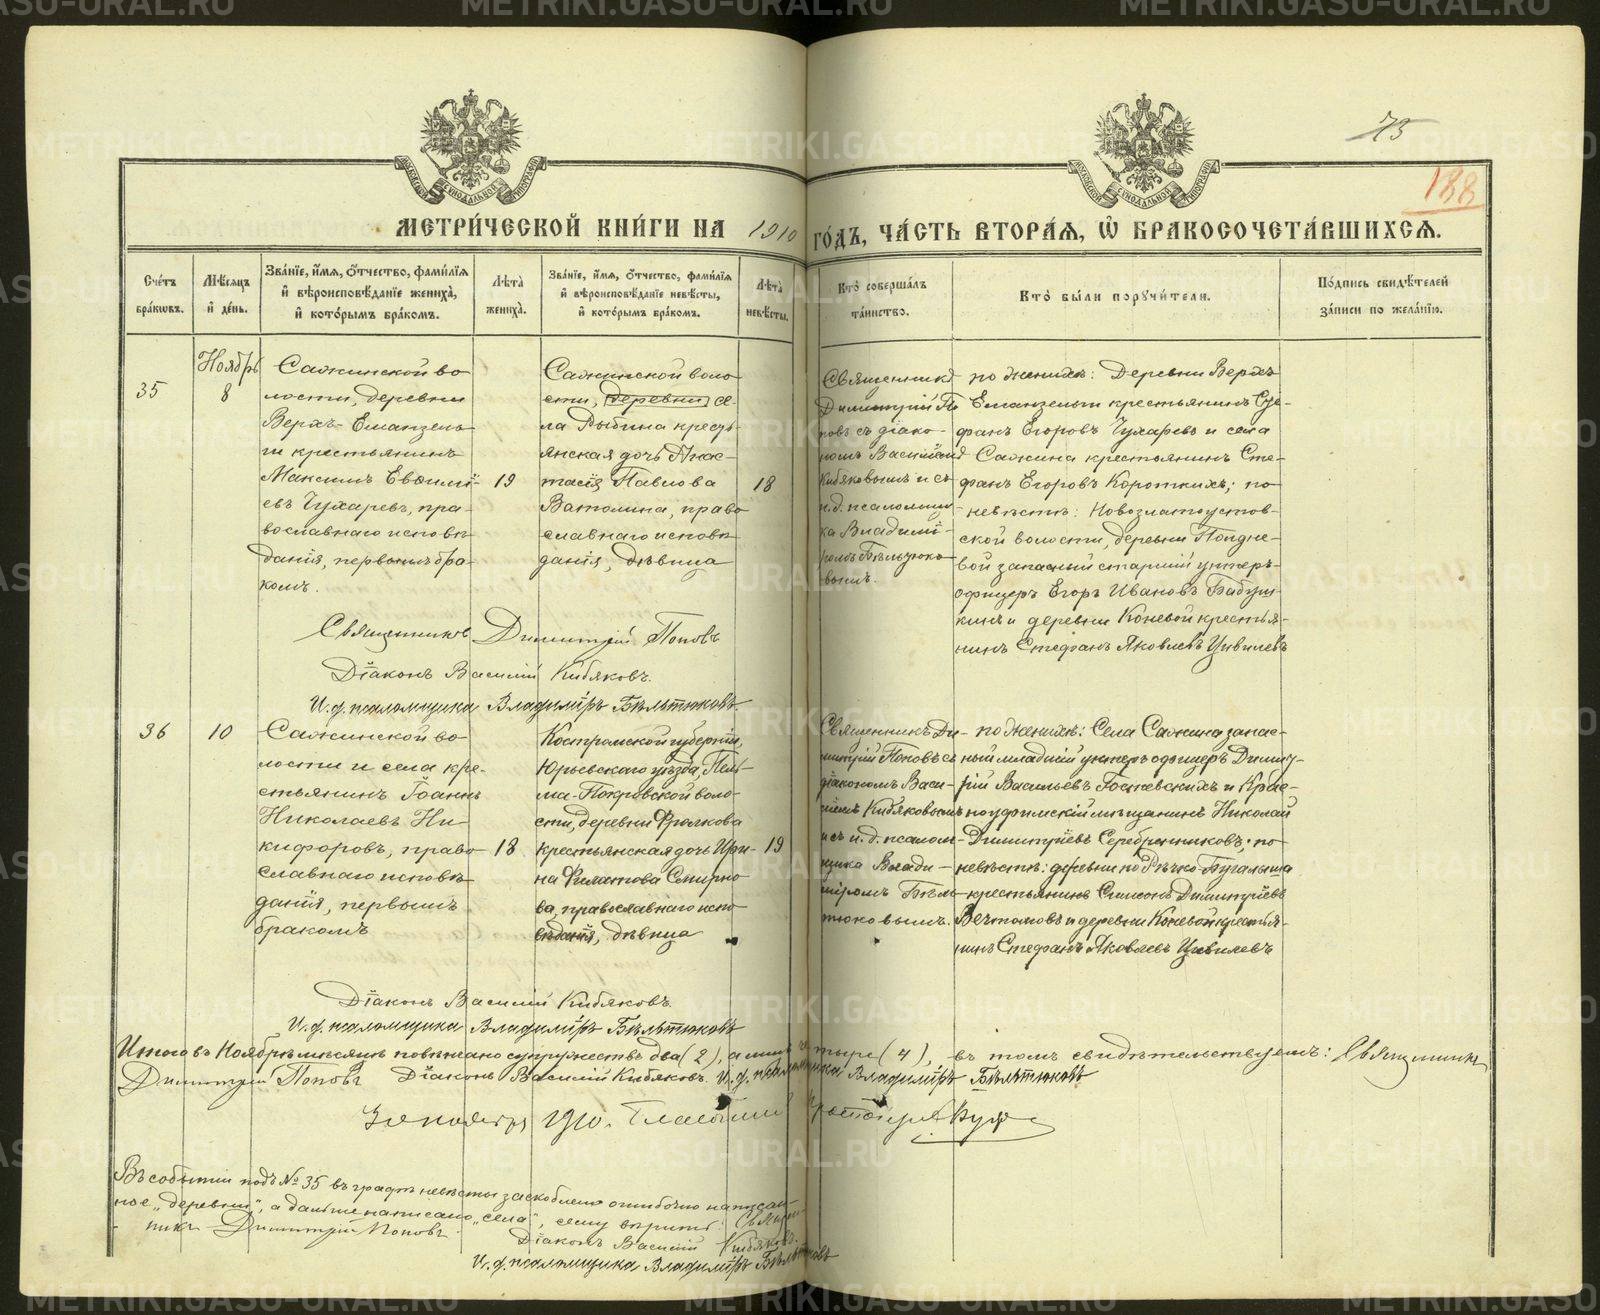 METRIKI.GASO-URAL.RU
73
188
МЕТРИ́ЧЕСКОЙ КНИ́ГИ НА 1910 ГО́ДЪ, ЧА́СТЬ ВТОРА́Я, Ѽ БРАКОСОЧЕТА́ВШИХСЯ.
Сче́тъ бра́ковъ.
Мѣ́сяцъ и҆ де́нь.
Зва́нїе, и҆́мя, ѻ҆́тчество, фами́лїя
и҆ вѣроисповѣ́данїе жениха̀,
и҆ кото́рымъ бра́комъ.
Лѣ́та жениха̀.
Зва́нїе, и҆́мя, ѻ҆́тчество, фами́лїя
и҆ вѣроисповѣ́данїе невѣ́сты,
и҆ кото́рымъ бра́комъ.
Лѣ́та невѣ́сты.
Кто̀ соверша́лъ
та́инство.
Кто̀ бы́ли поручи́тели.
По́дпись свидѣ́телей
за́писи по жела́нїю.
35
Ноябрь
8
Сажинской во
лости, деревни
Верхъ-Еманзель
ги крестьянинъ
Максимъ Евѳимі-
евъ Чухаревъ, пра-
вославнаго исповѣ
данія, первымъ бра-
комъ.
19
Сажинской воло
сти, деревни се-
ла Рыбина кресть
янская дочь Анас-
тасія Павлова
Ватолина, право
славнаго исповѣ
данія, дѣвица
18
Священникъ
Димитрій По
повъ съ діако-
номъ Василіемъ
Кибяковымъ и съ
и.д. псаломщи
ка Владимі-
ромъ Бѣльтюко
вымъ.
по женихѣ: Деревни Верхъ
Еманзельги крестьянинъ Сте-
фанъ Егоровъ Чухаревъ и села
Сажина крестьянинъ Сте-
фанъ Егоровъ Короткихъ; по
невѣстѣ: Новозлатоустов-
ской волости, деревни Поздне-
вой запасный старшій унтеръ-
офицеръ Егоръ Ивановъ Бабуш-
кинъ и деревни Коневой крестья-
нинъ Стефанъ Яковлевъ Цивилевъ
Священникъ Димитрій Поповъ
Діаконъ Василій Кибяковъ.
И.д. псаломщика Владиміръ Бѣльтюковъ
36
10
Сажинской во
лости и села кре-
стьянинъ Іоаннъ
Николаевъ Ни-
кифоровъ, право
славнаго исповѣ
данія, первымъ
бракомъ
18
Костромской губерніи,
Юрьевскаго уѣзда, Пель-
ма-Покровской воло-
сти, деревни Фролкова
крестьянская дочь Ири-
на Филатова Смирно
ва, православнаго испо
вѣданія, дѣвица
19
Священникъ Ди-
митрій Поповъ съ
діакономъ Васи-
ліемъ Кибяковымъ
и съ и.д. псалом-
щика Влади-
міромъ Бѣль
тюковымъ.
по женихѣ: Села Сажина запас-
ный младшій унтеръ офицеръ Димит-
рій Васильевъ Гостевскихъ и Крас-
ноуфимскій мѣщанинъ Николай
Димитріевъ Серебренниковъ; по
невѣстѣ: деревни
крестьянинъ Симеонъ Димитріевъ
Вечтомовъ и деревни Коневой крестья-
нинъ Стефанъ Яковлевъ Цивилевъ
Діаконъ Василій Кибяковъ.
И.д. псаломщика Владиміръ Бѣльтюковъ
Итого въ Ноябрѣ мѣсяцѣ повѣнчано супружествъ два (2), а лицъ четыре (4), въ томъ свидѣтельствуемъ: Священникъ
Димитрій Поповъ Діаконъ Василій Кибяковъ. И.д. псаломщика Владиміръ Бѣльтюковъ
1910.
Въ событіи подъ № 35 въ графѣ невѣсты заскоблено ошибочно написан-
ное „деревни“, а дальше написано „села“, сему вѣрить: Священ-
никъ Димитрій Поповъ.
Діаконъ Василій Кибяковъ.
И.д. псаломщика Владиміръ Бѣльтюковъ